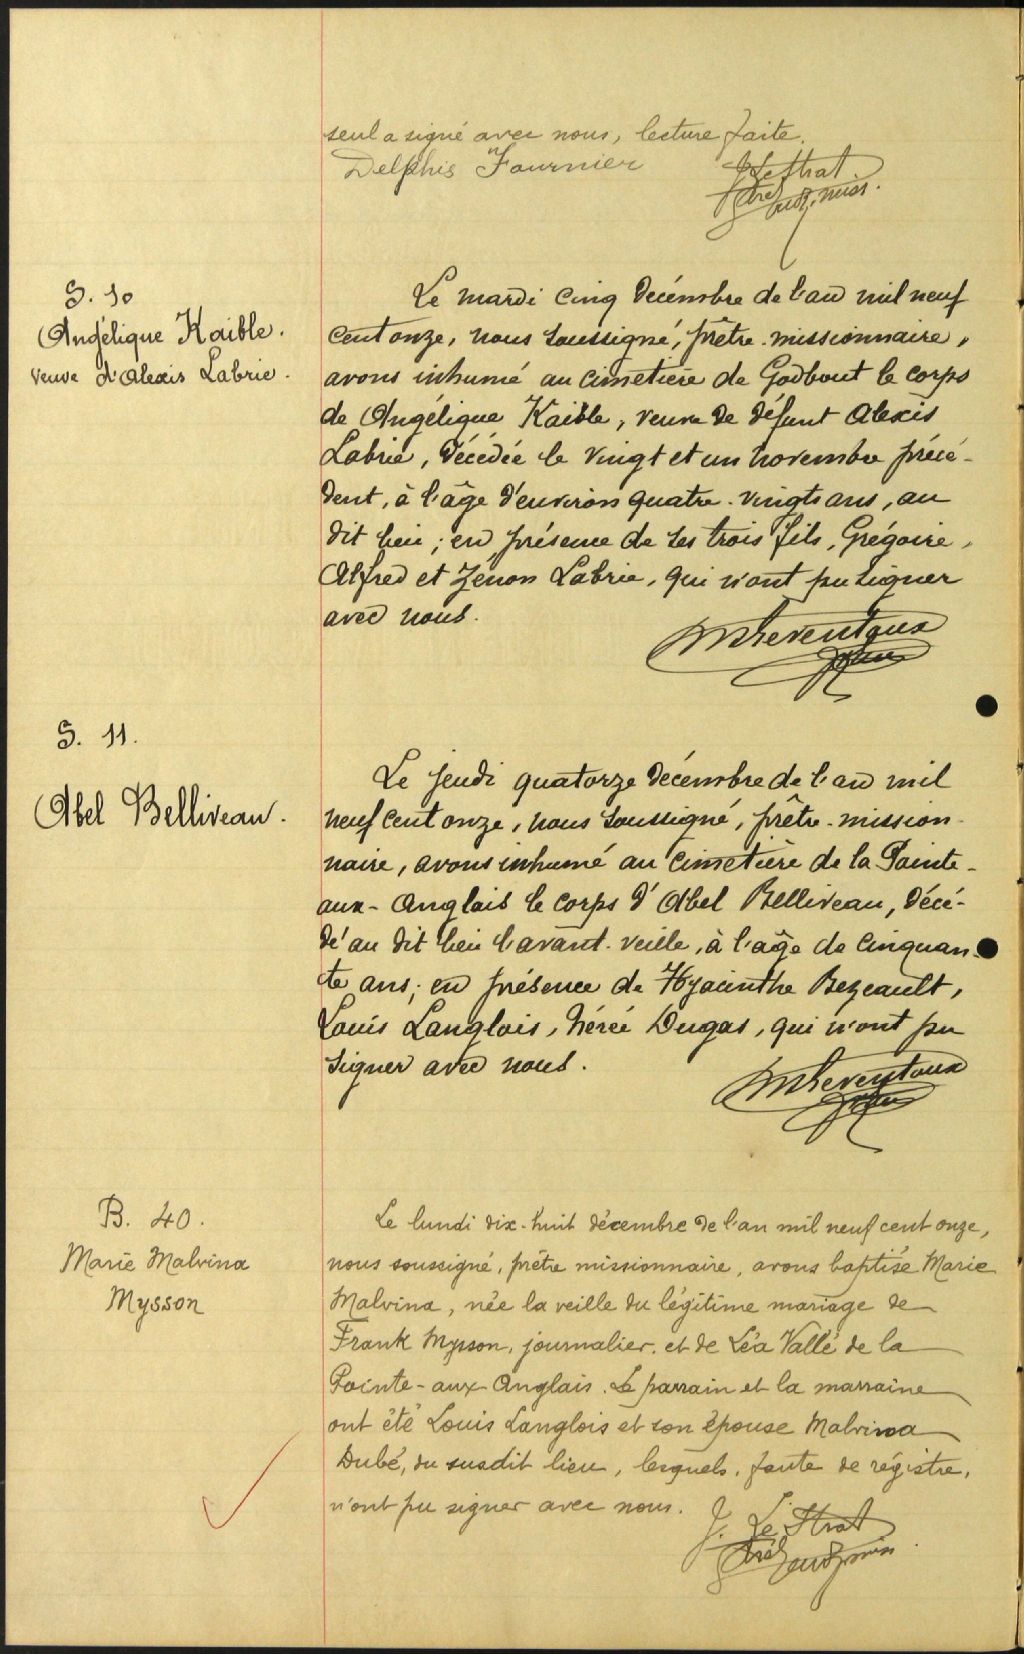 seul a signé avec nous, lecture faite.
Delphis Fournier
J. Le Strat
ptre miss.
S. 10
Angélique Kaible.
veuve d'Alexis Labrie.
Le mardi cinq décembre de l'an mil neuf
cent onze, nous soussigné, prêtre-missionnaire,
avons inhumé au cimetière de Godbout le corps
de Angélique Kaible, veuve de défunt Alexis
Labrie, décédée le vingt et un novembre précé-
dent, à l'âge d'environ quatre-vingts ans, au
dit lieu; en présence de ses trois fils, Grégoire,
Alfred et Zénon Labrie, qui n'ont pu signer
avec nous.
S. 11.
Abel Belliveau.
Le jeudi quatorze décembre de l'an mil
neuf cent onze, nous soussigné, prêtre-mission-
naire, avons inhumé au cimetière de la Pointe-
aux-Anglais le corps d'Abel Belliveau, décé-
dé au dit lieu l'avant-veille, à l'âge de cinquan-
te ans; en présence de Hyacinthe Bezeault,
Louis Langlois, Néréé Dugas, qui n'ont pu
signer avec nous.
B. 40.
Marie Malvina
Mysson
Le lundi dix-huit décembre de l'an mil neuf cent onze,
nous soussigné, prêtre missionnaire, avons baptisé Marie
Malvina, née la veille du légitime mariage de
Frank Mysson, journalier, et de Léa Vallé de la
Pointe-aux-Anglais. Le parrain et la marraine
ont été Louis Langlois et son épouse Malvina
Dubé, du susdit lieu, lesquels, faute de régistre,
n'ont pu signer avec nous.
J. Le Strat